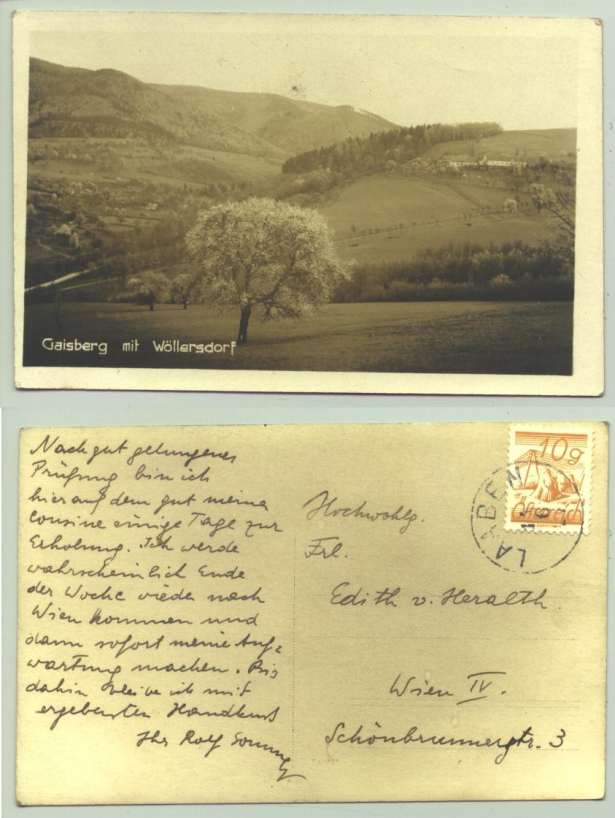 Gaisberg mit Wöllersdorf
Nach gut gelungener
Prüfung bin ich
hier auf dem gut meiner
cousine einige Tage zur
Erholung. Ich werde
wahrscheinlich Ende
der Woche wieder nach
Wien kommen und
dann sofort meine Auf-
wartung machen. Bis
dahin bleibe ich mit
ergebensten Handkuss
Ihr Rolf
Hochwohlg.
Frl.
Edith v. Heralth
Wien IV.
Schönbrunnerstr. 3
10g
LAABEN